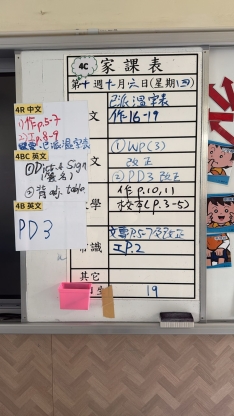 4C 家課表
第十週十月六日(星期四)
已派溫字表
作16-19
文
① WP(3)
改正
② PD3 改正
文
作 P.10,11
學
校本(P.3-5)
文憲P.5-7及改正
常識
工P.2
其它
19
4R 中文
1)作p.5-7
2)工p.8-9
已派溫字表
4BC 英文
① Dict 4 Sign
(簽名)
② 背 adj. table
4B 英文
PD3